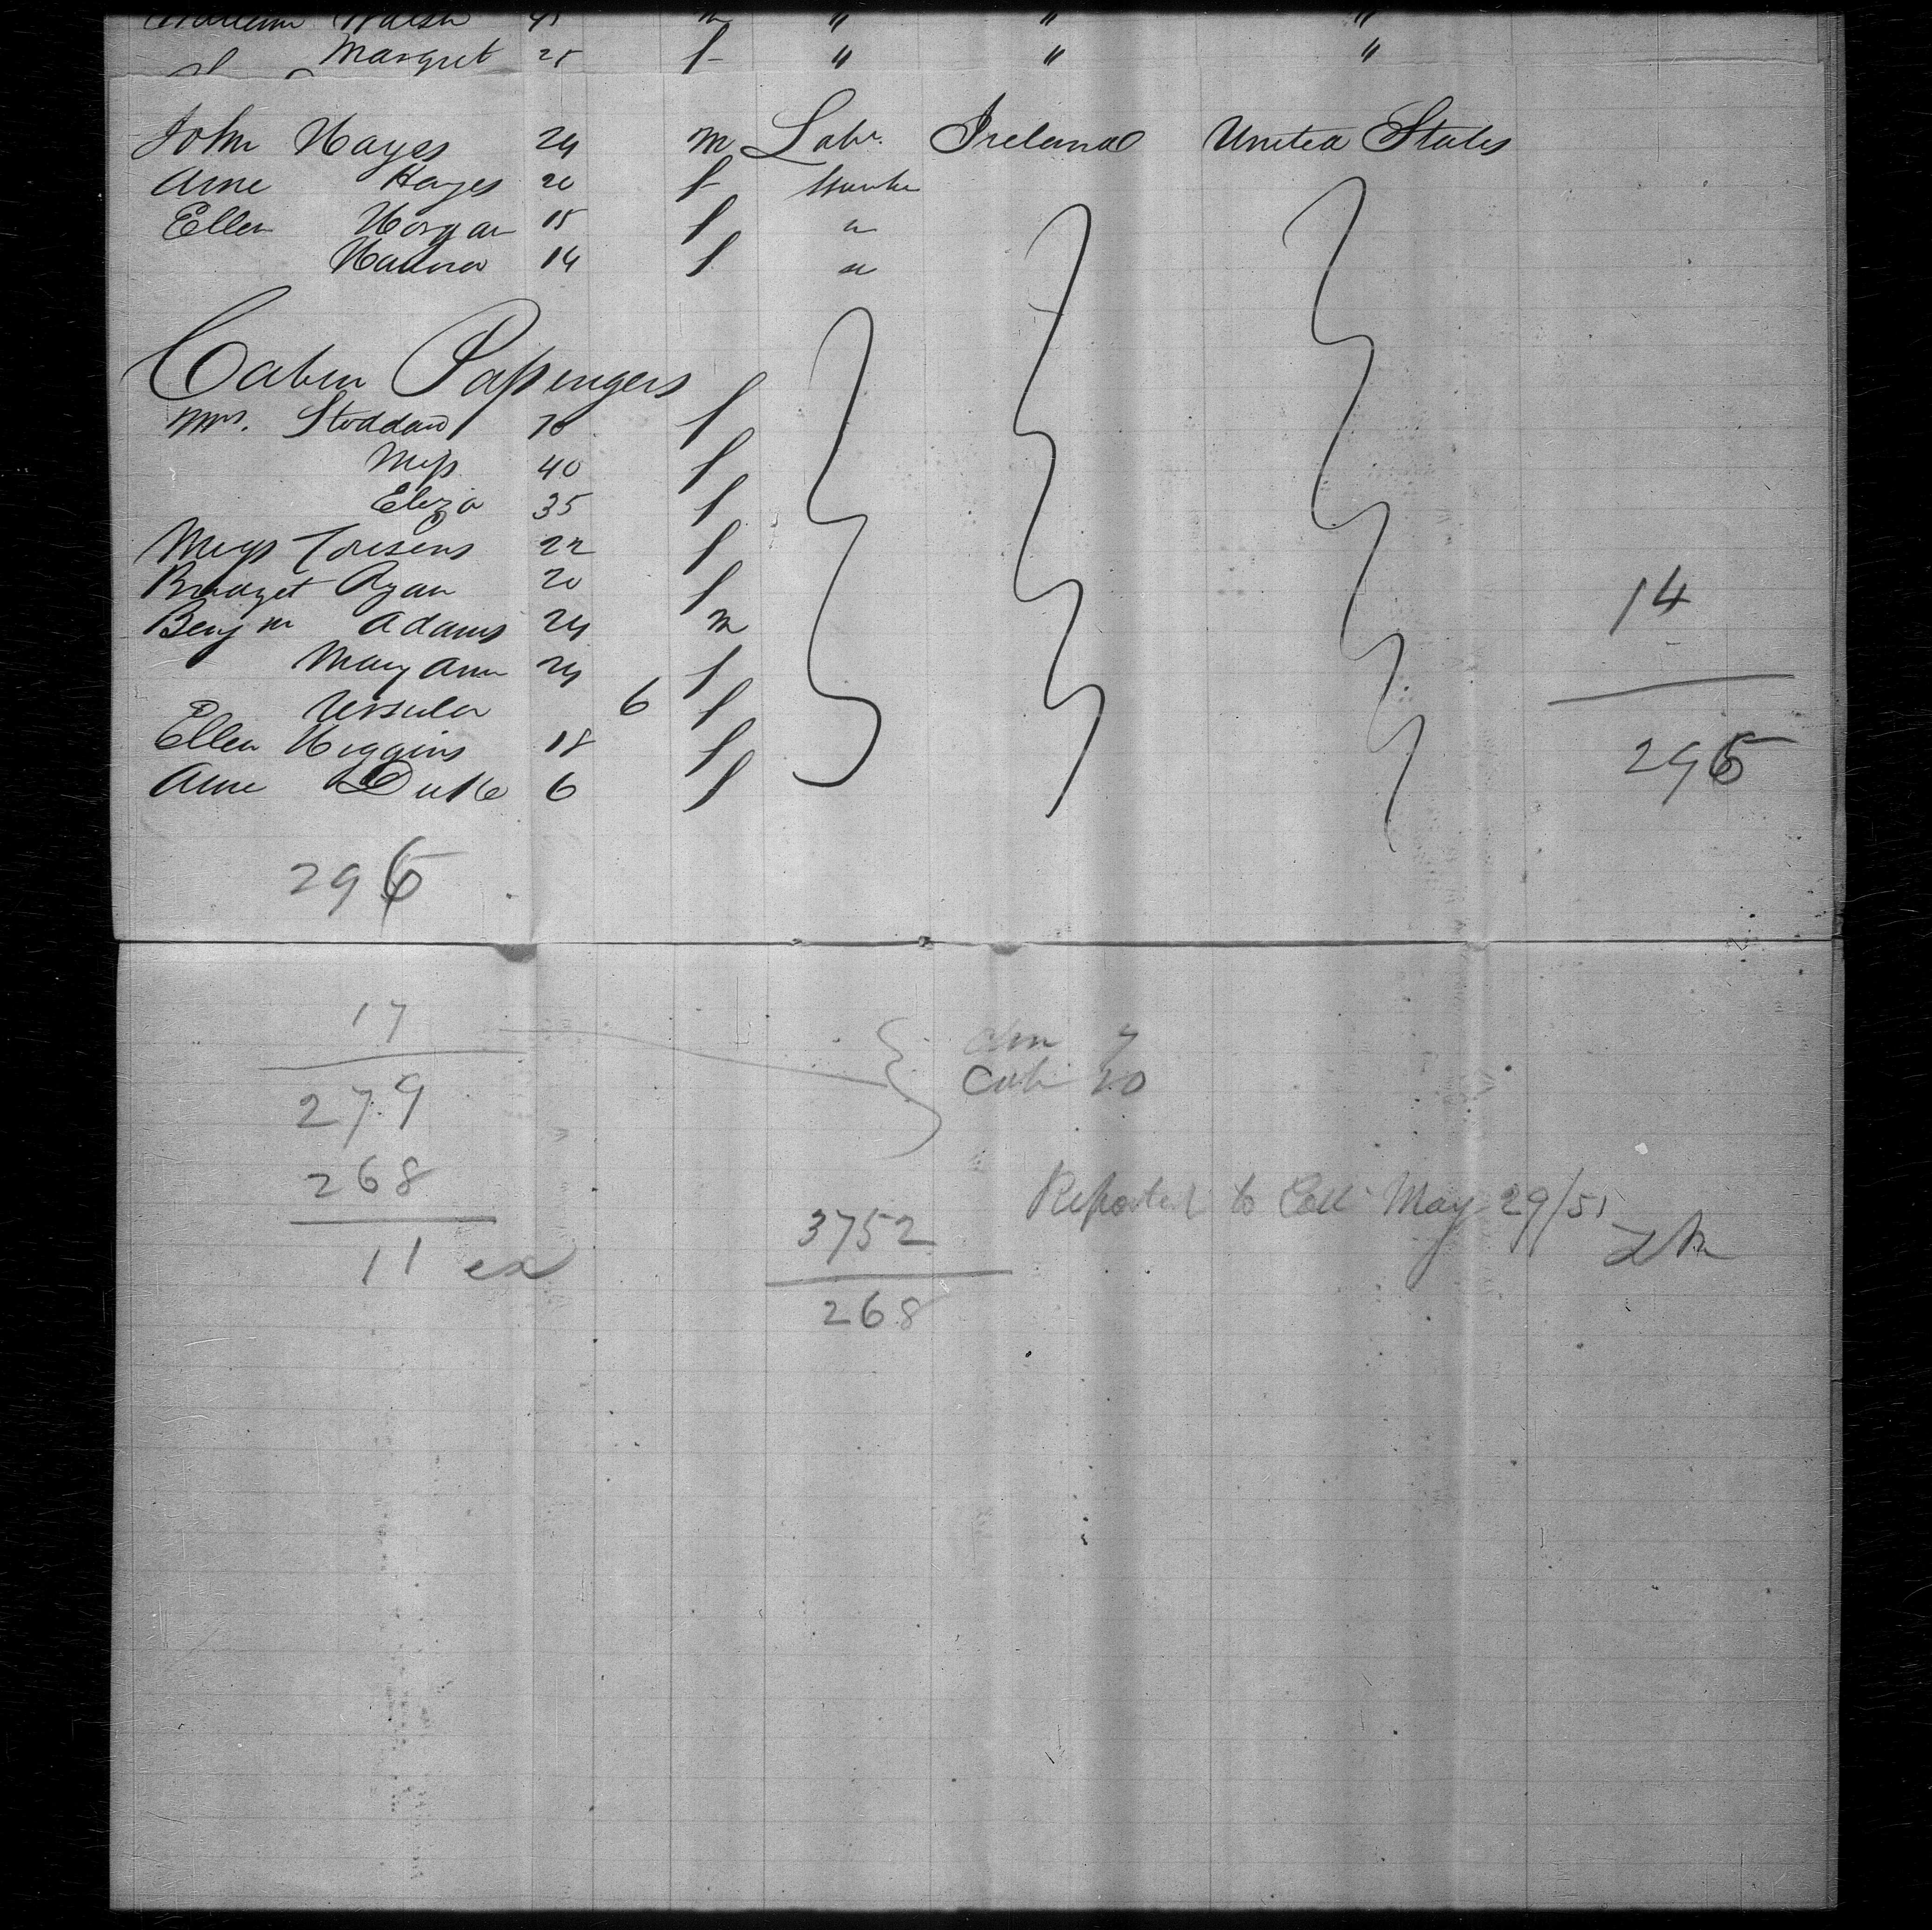 William Walsh 45 m " " "
Margret 25 f " " "
John Hayes 24 m Labr. Ireland United States
Anne Hayes 20 f
Ellen Horgan 15 f "
Hanna 14 f "
Cabin Passengers
Mrs. Stoddard 70 f
Miss 40 f
Eliza 35 f
Miss Cousens 22 f
Bridget Ryan 20 f
Benjm Adams 24 m
Mary Ann 24 f
Ursula 6 f
Ellen Higgins 18 f
Anne Duke 6 f
14
296
296
17
279
268
11 ex
Am 7
Cab 10
Reported to Coll May 29/51
3752
268